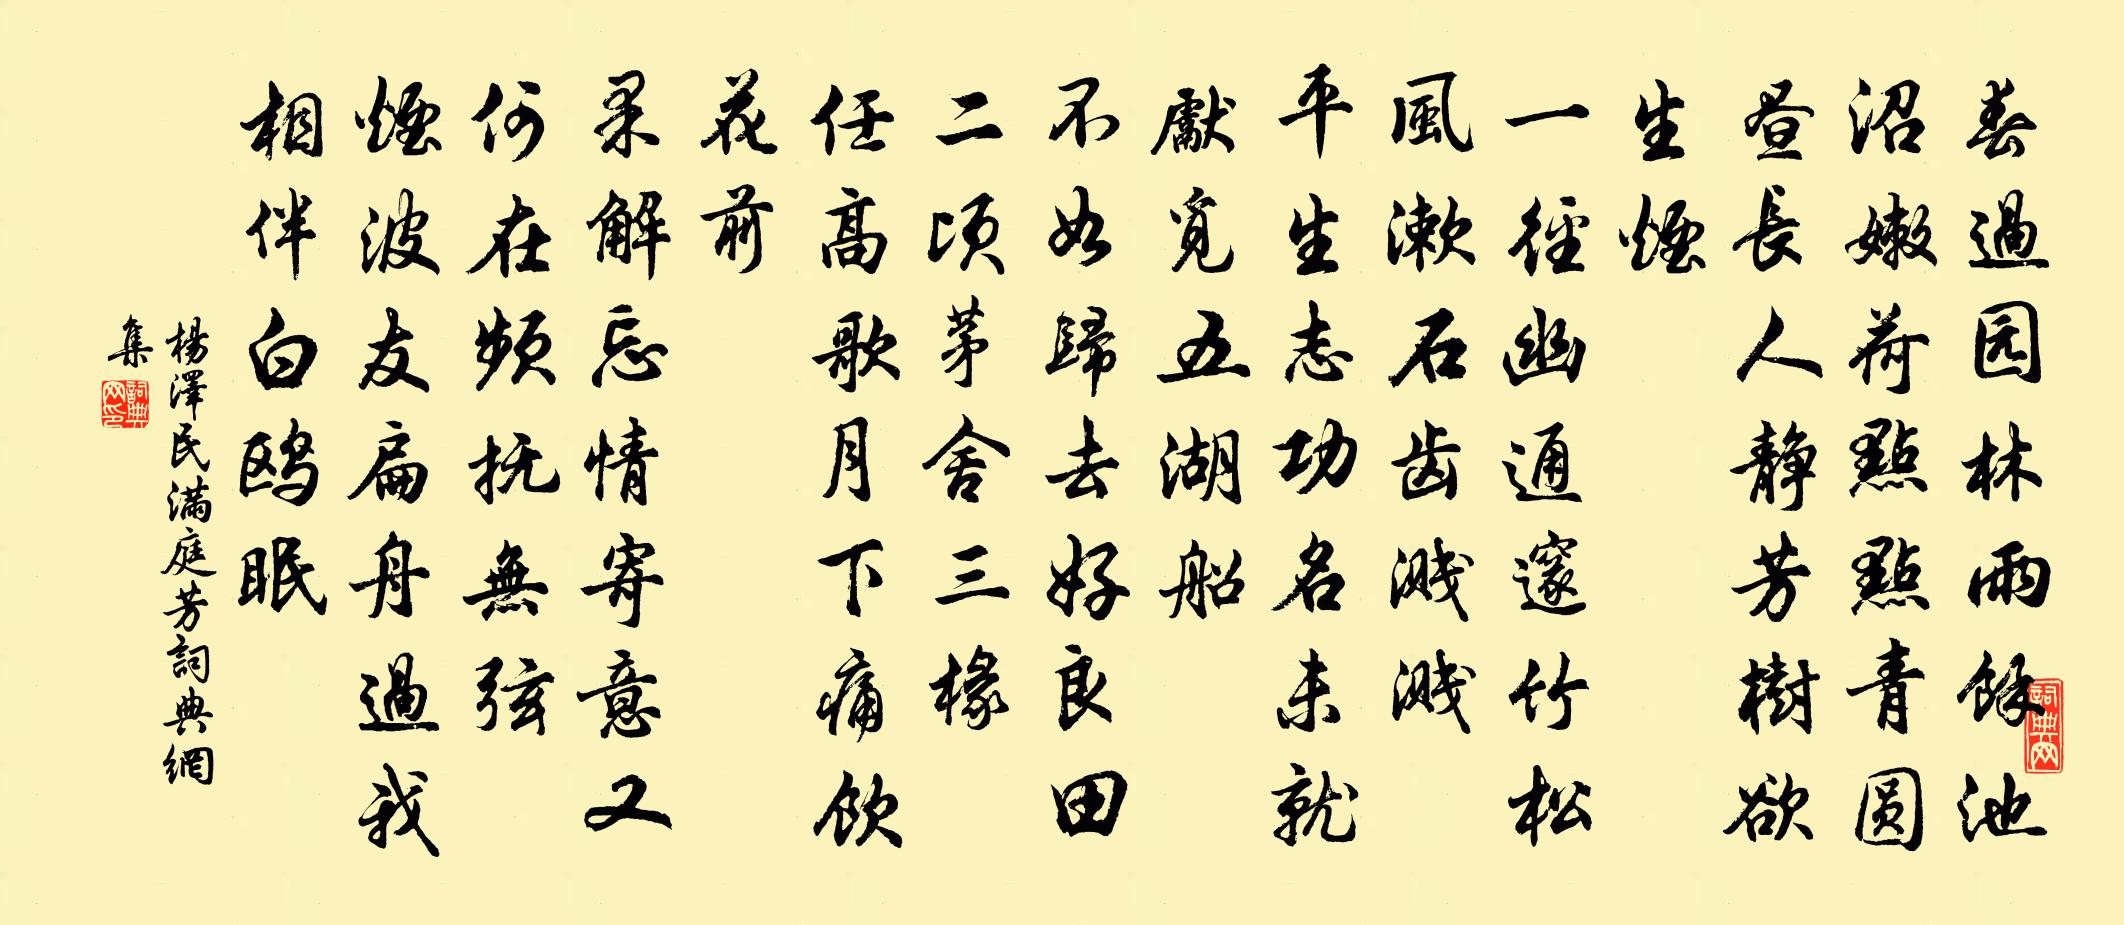 春過园林雨餘池
沼嫩荷點點青圆
昼長人静芳樹欲
生煙
一徑幽通邃竹松
風漱石齿溅溅
平生志功名未就
獻覓五湖船
不如歸去好良田
二顷茅舍三椽
任高歌月下痛飲
花前
果解忘情寄意又
何在频抚無弦
煙波友扁舟過我
相伴白鸥眠
楊澤民滿庭芳詞典網
集
詞典网印
詞典网